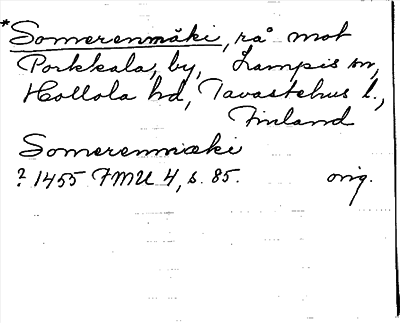 *Somerenmäki, rå mot
Porkkala, by, Lampis sn,
Hollola hd, Tavastehus l.,
Finland
Somerenmæki
? 1455 FMU 4, s. 85. orig.